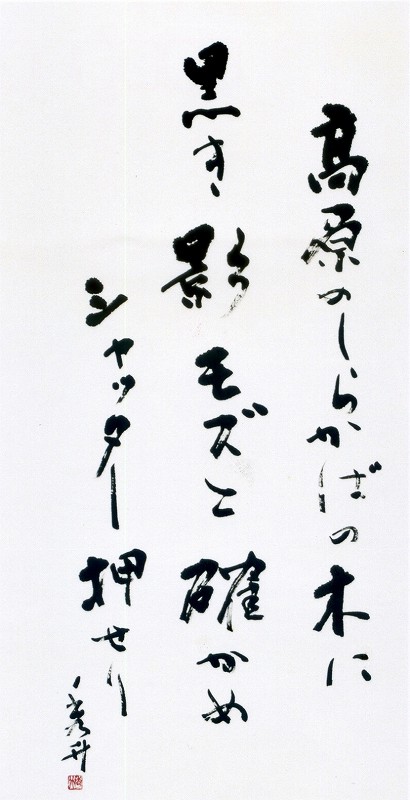 高原のしらかばの木に
黒き影モズと確かめ
シャッター押せり
秀舟